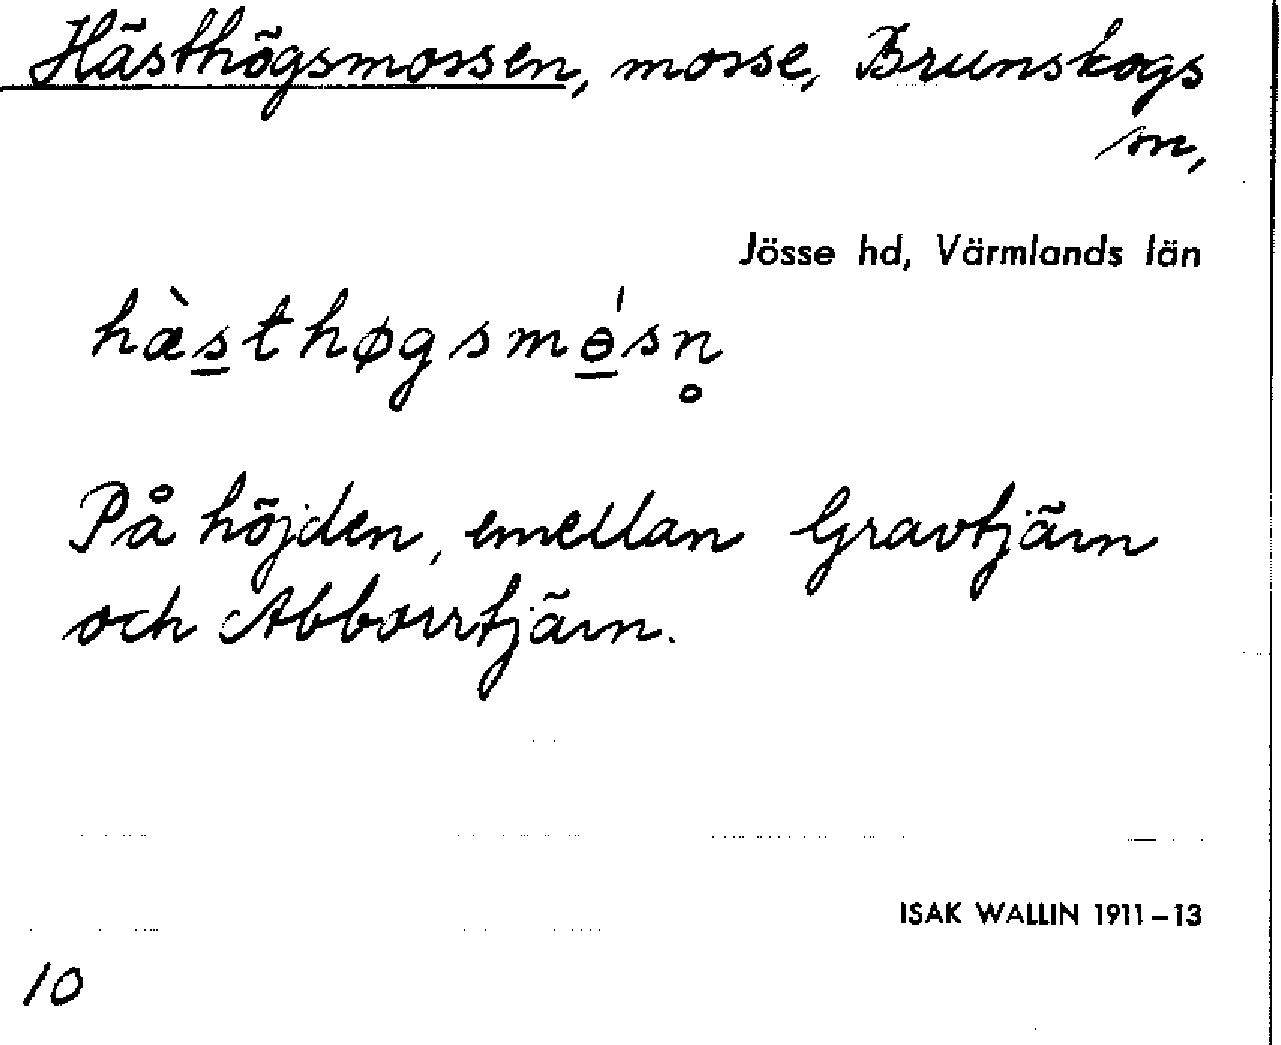 Hästhögsmossen, mosse, Brunskogs
sn,
Jösse hd, Värmlands län
hæ̀s̲thøgsmɵ̲́sn̥
På höjden, emellan Gravtjärn
och Abborrtjärn.
ISAK WALLIN 1911–13
10